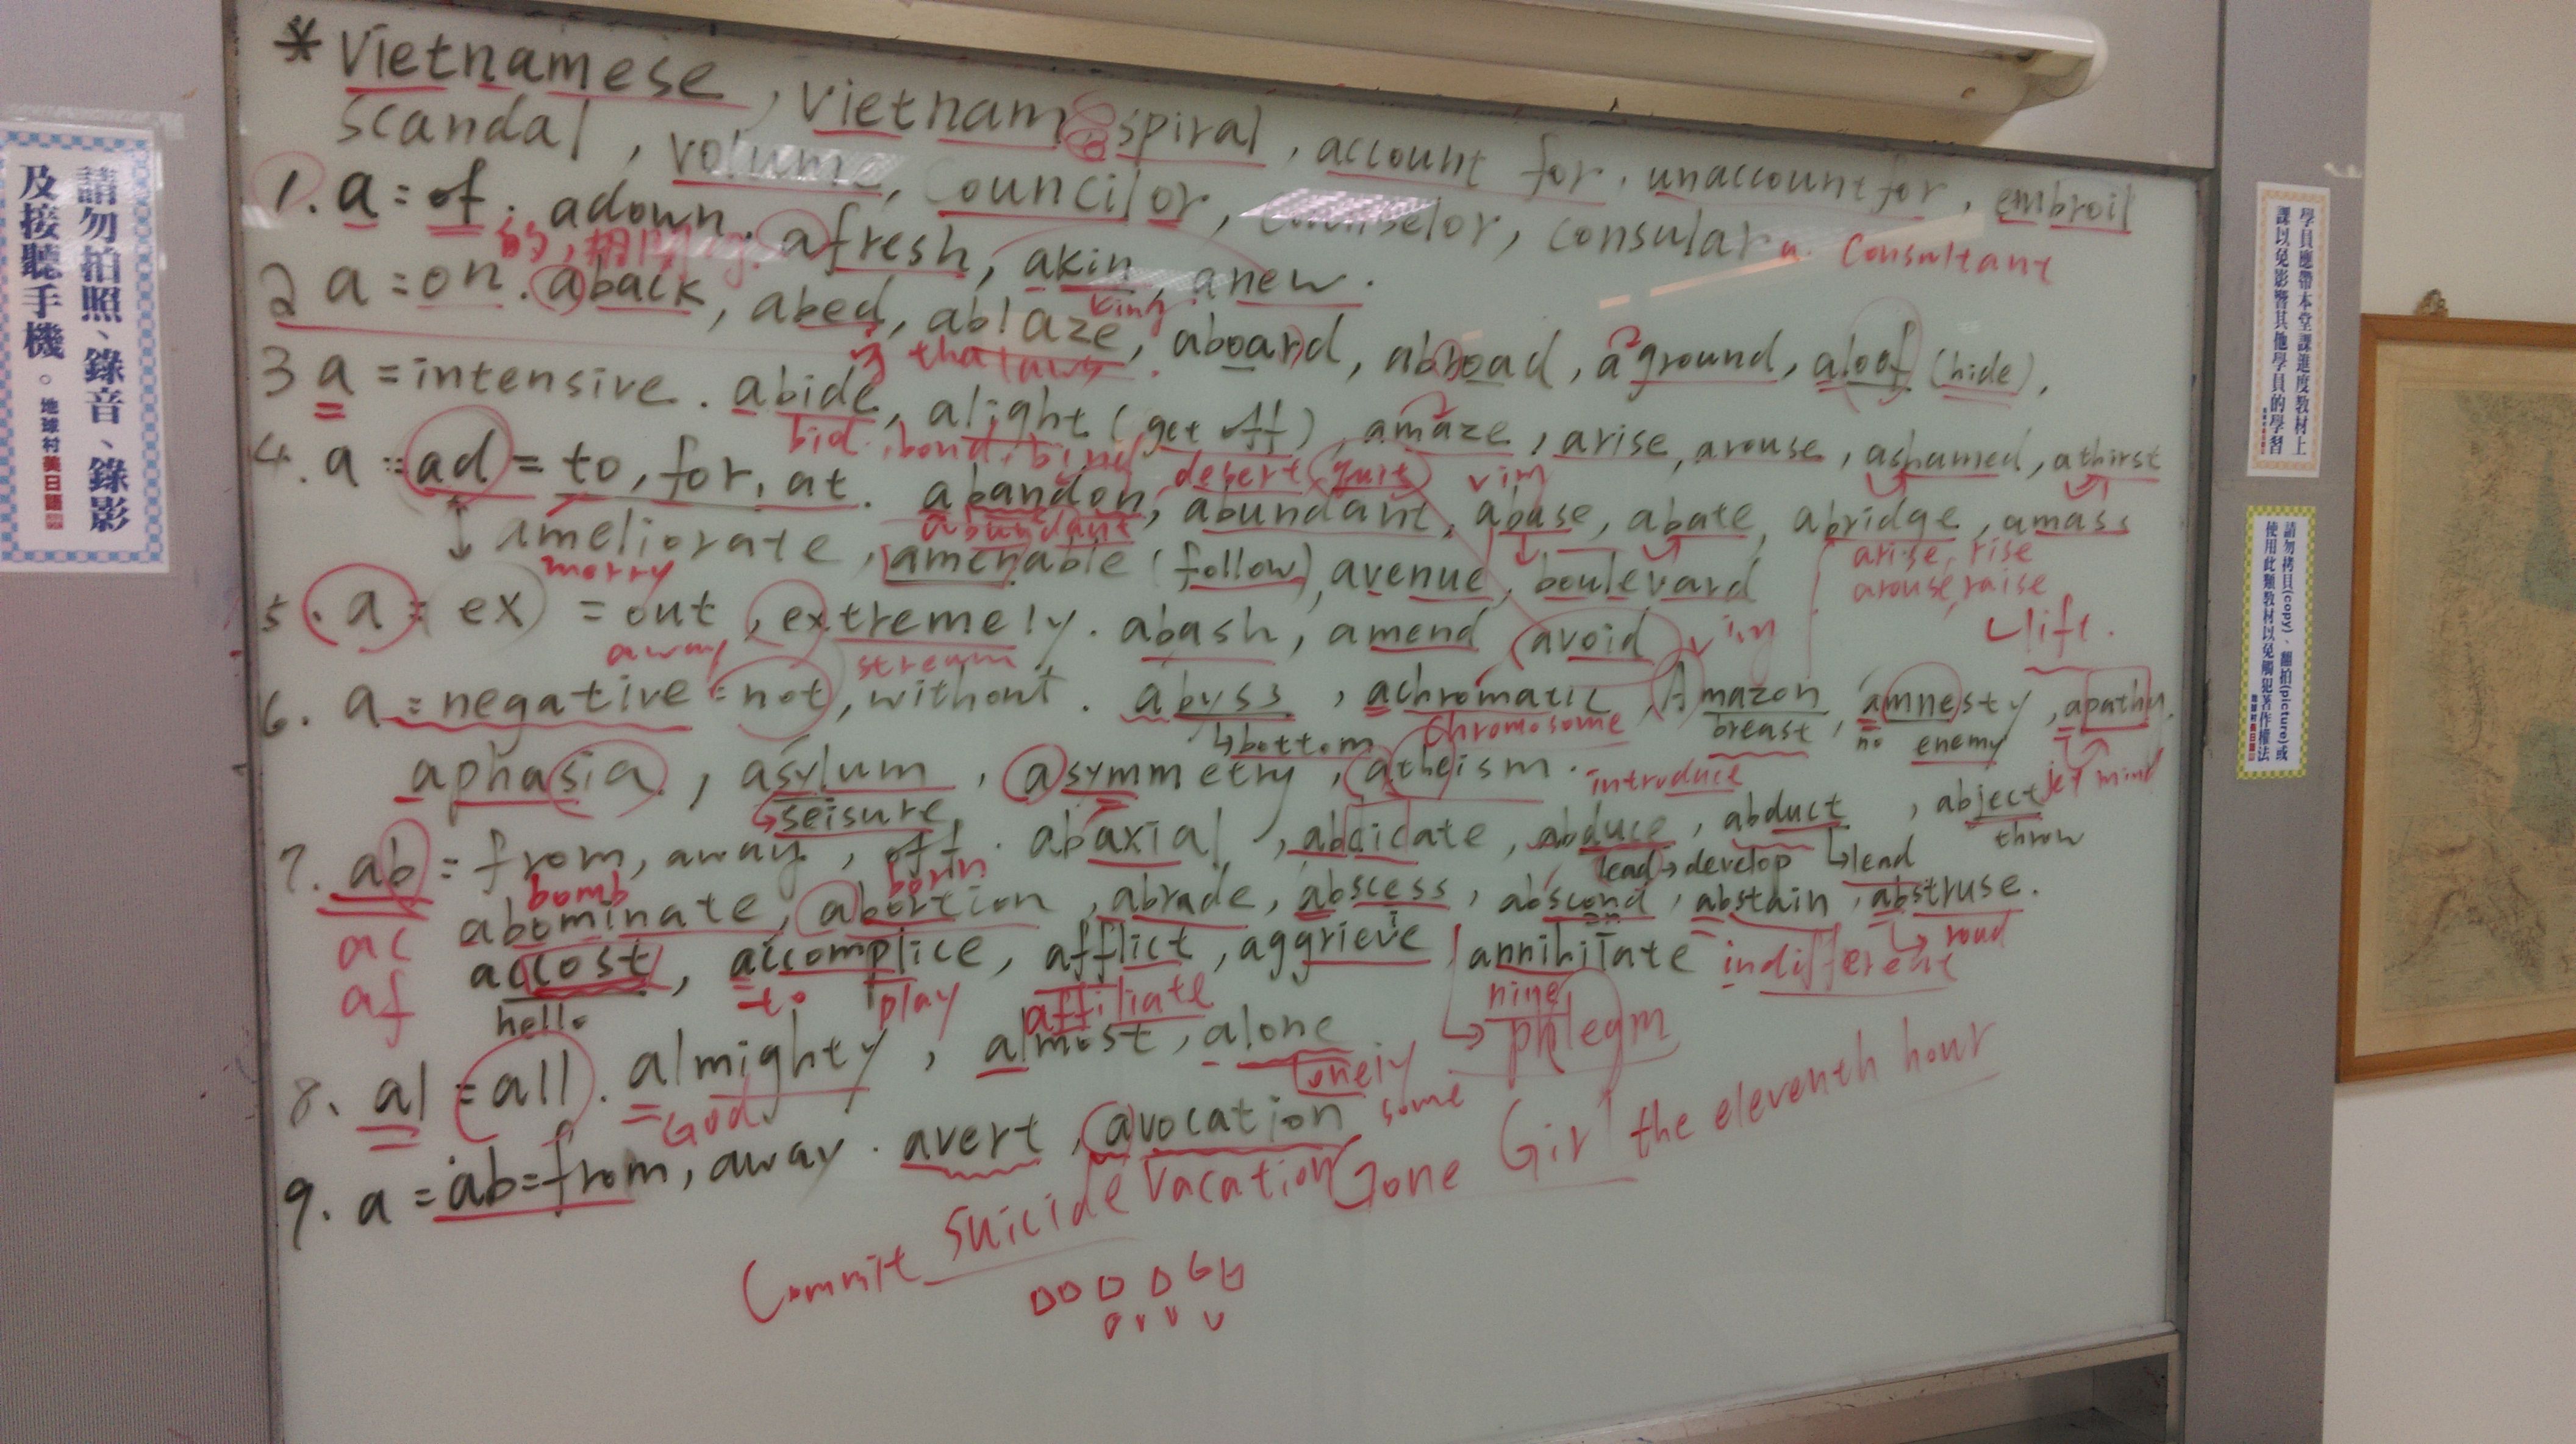 請勿拍照、錄音、錄影
及接聽手機。
地球村美日語
* Vietnamese, Vietnam spiral, account for, unaccount for, embroil
scandal, volume, councilor, counselor, consular a. consultant
1. a = of. adown, afresh, akin, anew.
的,
king
2 a = on. aback, abed, ablaze, aboard, abroad, aground, aloof (hide),
3 a = intensive. abide, alight (get off), amaze, arise, arouse, ashamed, athirst
bid, bond, bind
desert (quit) vim
4. a = ad = to, for, at. abandon, abundant, abuse, abate, abridge, amass
abundant
ameliorate, amenable (follow), avenue, boulevard
merry
arise, rise
arouse, raise
lift.
5. a = ex = out, extremely. abash, amend avoid
away stream
6. a = negative = not, without. abyss, achromatic, Amazon, amnesty, apathy.
bottom chromosome breast no enemy
aphasia, asylum, asymmetry, atheism.
seisure introduce
mind
7. ab = from, away, off. abaxial, abdicate, abduce, abduct, abject
lead→develop lead throw
bomb born
abominate, abortion, abrade, abscess, abscond, abstain, abstruse.
ac
af
accost, accomplice, afflict, aggrieve annihilate indifferent
hello to play affiliate phlegm
8. al = all. almighty, almost, alone
=God lonely
some
9. a = ab = from, away. avert, avocation
vacation Gone Girl the eleventh hour
Commit suicide
學員應帶本堂課進度教材上
課以免影響其他學員的學習
請勿拷貝(copy)、翻拍(picture)或
使用此類教材以免觸犯著作權法